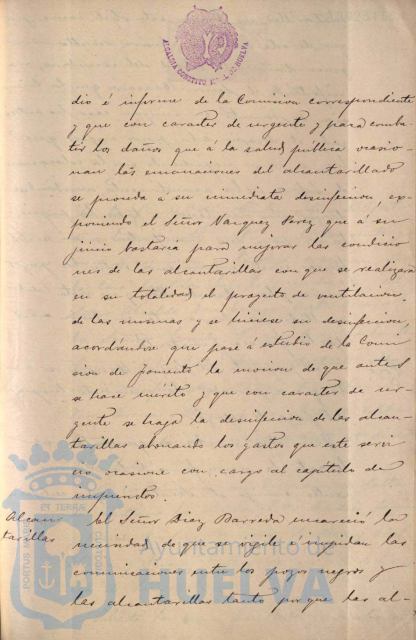 ALCALDIA CONSTITUCIONAL DE HUELVA
dio é informe de la Comision correspondiente
y que con caracter de urgente y para comba-
tir los daños que á la salud pública ocasio-
nan las emanaciones del alcantarillado
se proceda á su inmediata desinfeccion, ex-
poniendo el Señor Vazquez Perez que á su
juicio bastaria para mejorar las condicio
nes de las alcantarillas con que se realizara
en su totalidad el proyecto de ventilacion
de las mismas y se hiciese su desinfeccion,
acordándose que pase á estudio de la Comi
sion de Fomento la mocion de que antes
se hace mérito y que con caracter de ur-
gente se haga la desinfeccion de las alcan-
tarillas abonando los gastos que este servi
cio ocasione con cargo al capitulo de
imprevistos.
Alcan
tarillas
El Señor Diaz Barreda encareció la
necesidad de que se vigile é impidan las
comunicaciones entre los pozos negros y
las alcantarillas tanto porque las al-
PORTUS
ET TERRAE
Ayuntamiento de
HUELVA